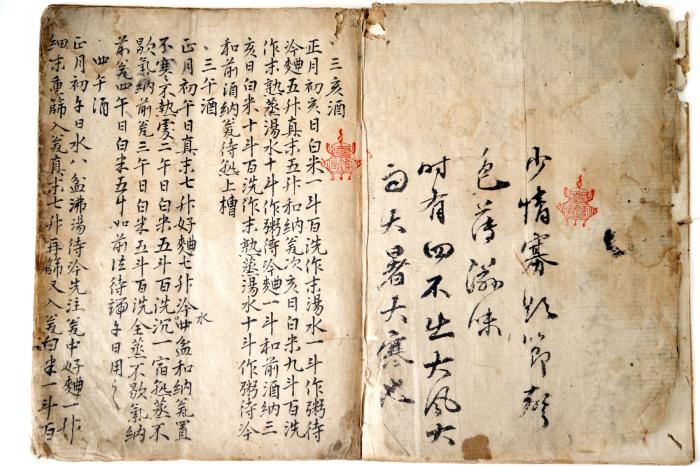 少情寡慾節聲
色薄滋味
時有四不出大風大
雨大暑大寒也
三亥酒
正月初亥日白米一斗百洗作末湯水一斗作粥待
冷麯五升真末五升和納瓮次亥日白米九斗百洗
作末熟蒸湯水十斗作粥待冷麯一斗和前酒納三
亥日白米十斗百洗作末熟蒸湯水十斗作粥待冷
和前酒納瓮待熟上槽
三午酒
正月初午日真末七升好麯七升冷水四盆和納瓮置
不寒不熱處二午日白米五斗百洗沉一宿熟蒸不
歇氣納前瓮三午日白米五斗百洗全蒸不歇氣納
前瓮四午日白米五斗如前法待端午日用之
四午酒
正月初午日水八盆沸湯待冷先注瓮中好麯一升
細末重篩入瓮真末七升再篩又入瓮白米一斗百